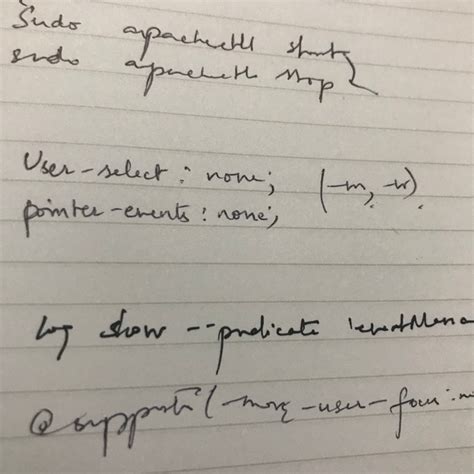 sudo apachectl start
sudo apachectl stop
User-select: none; (-m, -w).
pointer-events: none;
log show --predicate 'eventMessa
@supports (-moz-user-focus: